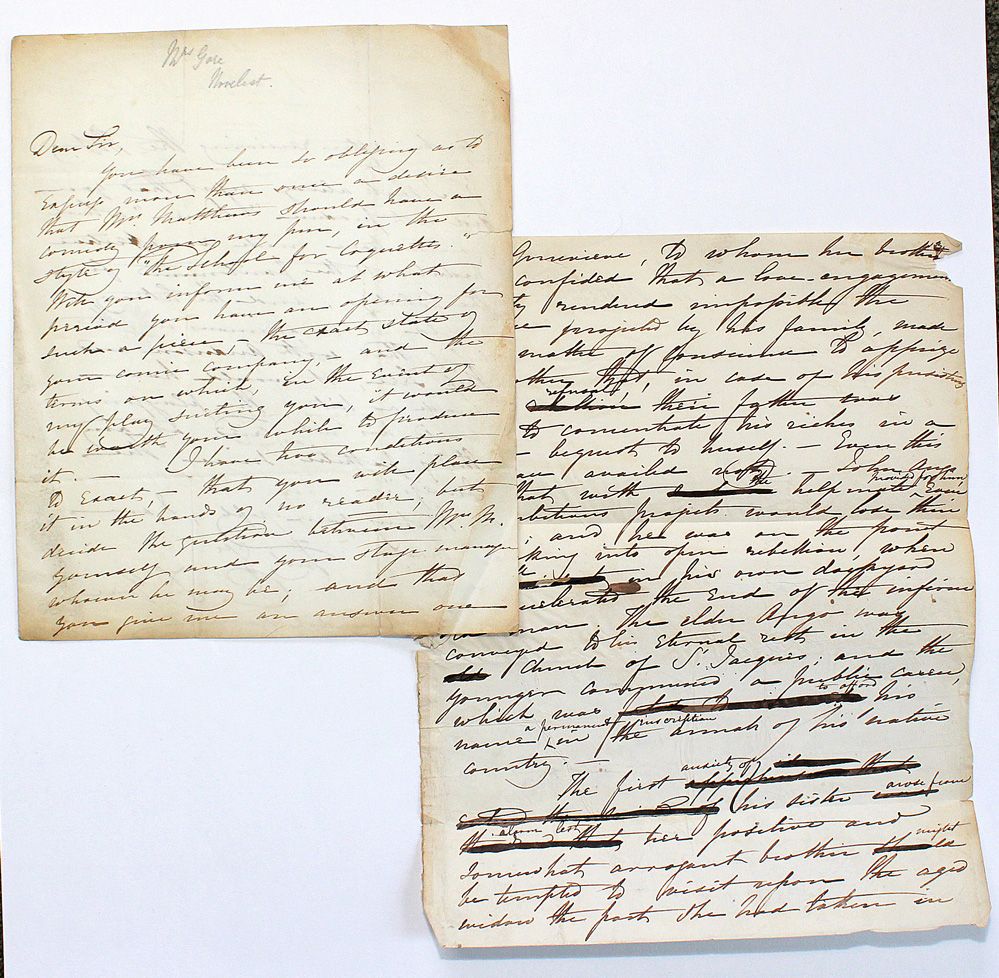 Mrs Gore
Novelist.
Dear Sir,
You have been so obliging as to
express more than once a desire
that Mrs Matthews should have a
comedy from my pen, in the
style of "the School for Coquettes."
Will you inform me at what
period you have an opening for
such a piece, - the exact state of
your comic company, - and the
terms on which, in the event of
my play suiting you, it would
be worth your while to produce
it. - I have two conditions
to exact, - that you will place
it in the hands of no reader, but
decide the question between Mrs M.
yourself and your stage manager
whoever he may be; and that
you give me an answer one
Genevieve, to whom her brother
confided that a love-engagement
rendered impossible the
projected by his family, made
matter of conscience to apprize
that, in case of his persisting
refusal their father was
to concentrate his riches in a
bequest to herself. - Even this
availed not. -
that with the help mate provided for him
projects would lose their
; and he was on the point
into open rebellion, when
in his own dockyard
accelerated the end of the infirm
old man. The elder was
conveyed to his eternal rest in the
Church of St. Jacques; and the
younger commenced a public career,
which was to afford his
name a permanent inscription in the annals of his native
country. -
The first anxiety of
his sister arose from
alarm lest her positive and
somewhat arrogant brother might
be tempted to visit upon the aged
widow the part she had taken in